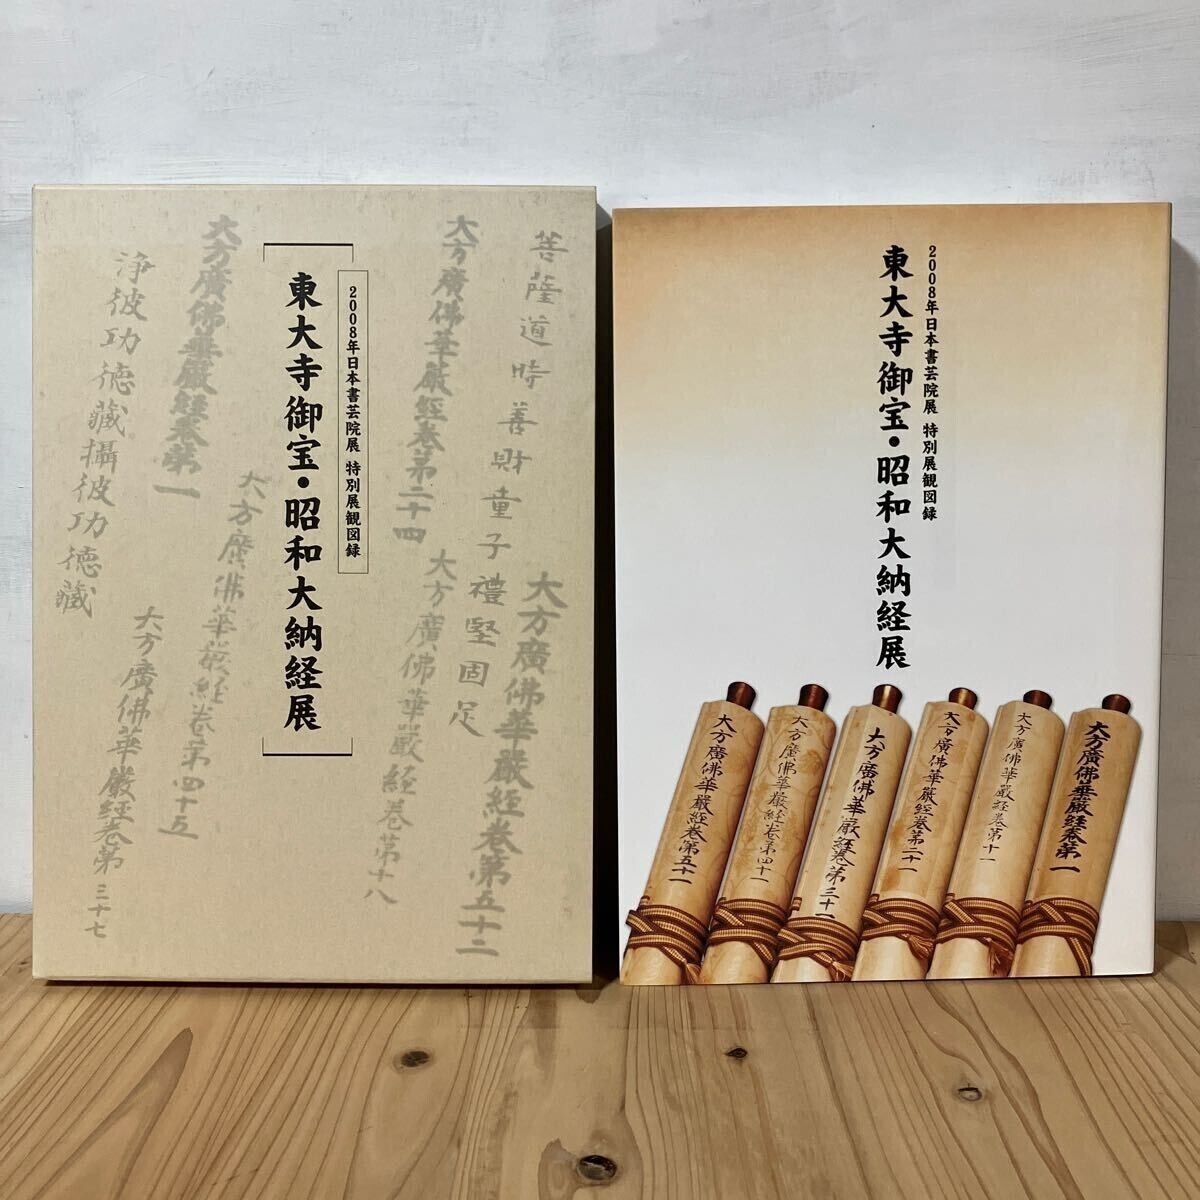 菩薩道時善財童子禮堅固足
大方廣佛華嚴經卷第五十二
大方廣佛華嚴經卷第二十四
大方廣佛華嚴經卷第十八
2008年日本書芸院展 特別展観図録
東大寺御宝・昭和大納経展
大方廣佛華嚴經卷第一
大方廣佛華嚴經卷第四十五
大方廣佛華嚴經卷第三十七
浄彼功徳藏攝彼功徳藏
2008年日本書芸院展 特別展観図録
東大寺御宝・昭和大納経展
大方廣佛華嚴經卷第一
大方廣佛華嚴經卷第十一
大方廣佛華嚴經卷第二十一
大方廣佛華嚴經卷第三十一
大方廣佛華嚴經卷第四十一
大方廣佛華嚴經卷第五十一